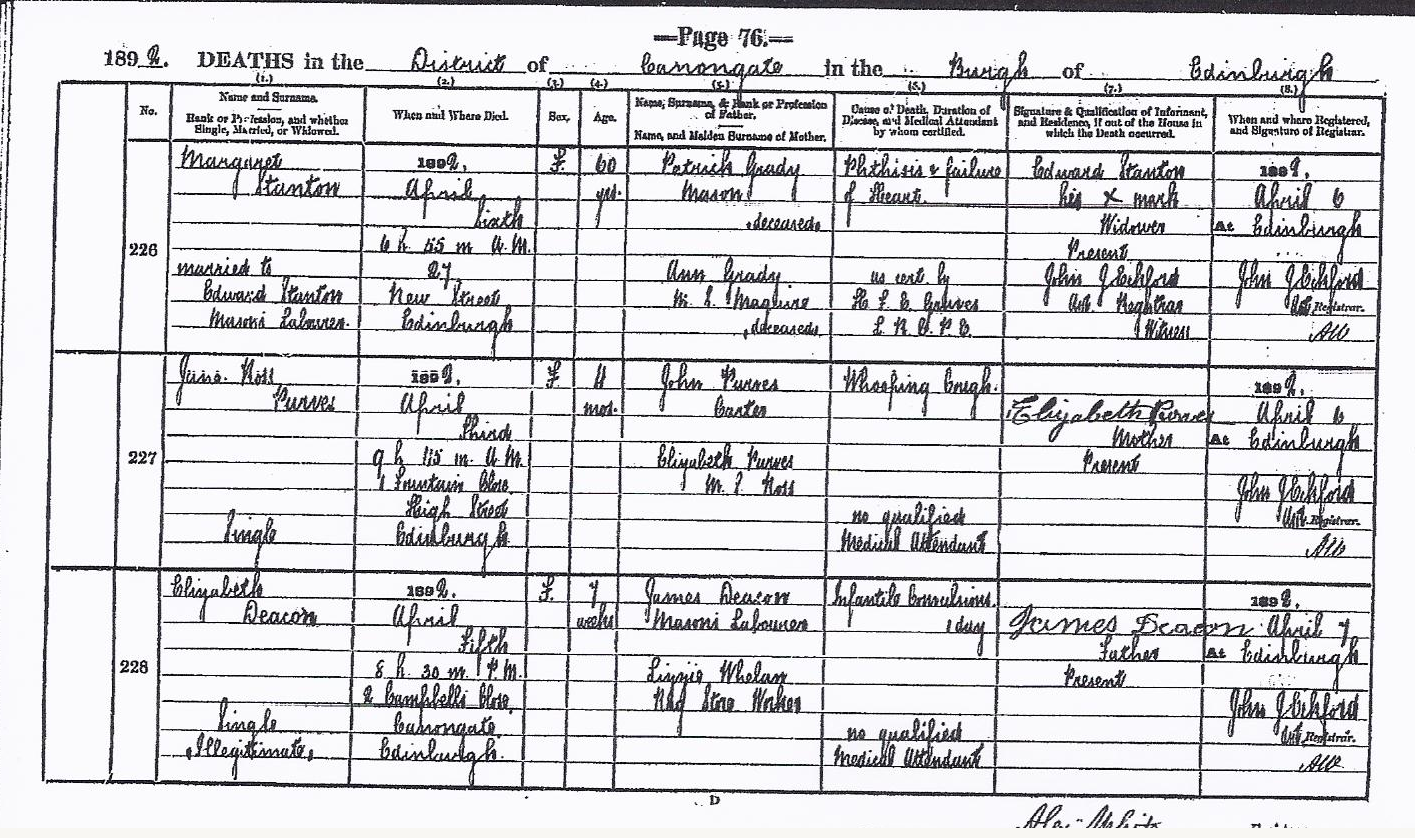 Page 76.
1892. DEATHS in the District of Canongate in the Burgh of Edinburgh
(1.) (2.) (3.) (4.) (5.) (6.) (7.) (8.)
No.
Name and Surname.
Rank or Profession, and whether
Single, Married, or Widowed.
When and Where Died.
Sex.
Age.
Name, Surname, & Rank or Profession
of Father.
Name, and Maiden Surname of Mother.
Cause of Death, Duration of
Disease, and Medical Attendant
by whom certified.
Signature & Qualification of Informant,
and Residence, if out of the House in
which the Death occurred.
When and where Registered,
and Signature of Registrar.
226
Margaret
Stanton
married to
Edward Stanton
Masons Labourer.
1892,
April
Sixth
6 h. 45 m. A.M.
27
New Street
Edinburgh
F.
60
yrs.
Patrick Grady
Mason
deceased
Ann Grady
M. S. Maguire
deceased
Phthisis & failure
of Heart.
as cert. by
L. R. C. P. E.
Edward Stanton
his x mark
Widower
Present
John J Eckford
Asst. Registrar
Witness
1892,
April 6
At Edinburgh
John J Eckford
Asst. Registrar.
AW
227
Jane Ross
Purves
Single
1892,
April
Third
9 h. 45 m. A.M.
Fountain Close
High Street
Edinburgh
F.
4
mos.
John Purves
Carter
Elizabeth Purves
M. S. Ross
Whooping Cough.
no qualified
Medical Attendant
Elizabeth Purves
Mother
Present
1892,
April 6
At Edinburgh
John J Eckford
Asst. Registrar.
AW
228
Elizabeth
Deacon
Single
(Illegitimate)
1892,
April
Fifth
8 h. 30 m. P.M.
2 Campbells Close
Canongate
Edinburgh.
F.
7
weeks
James Deacon
Masons Labourer
Lizzie Whelan
Rag Store Worker
Infantile Convulsions.
1 day
no qualified
Medical Attendant
James Deacon
Father
Present
1892,
April 7
At Edinburgh
John J Eckford
Asst. Registrar.
AW
D